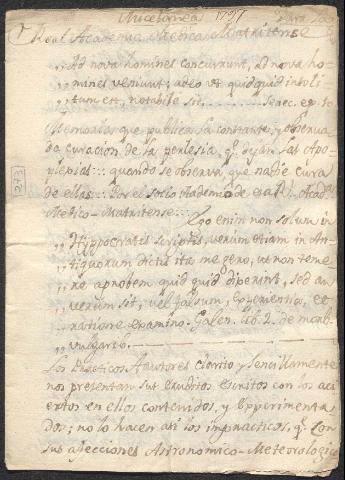 Miscelanea 1797 Para la
Real Academia Medica Matritense
„ Ad nova homines concurrunt, ad nova ho-
„ mines veniunt; adeo ut quidquid insoli-
„ tum est, notabile sit. Senec. ep. 10
Memorias que publica la constante, y observa
da curacion de la perlesia, q.e dejan las Apo-
plegias: quando se observa que nadie cura
de ellas. Por el socio Academico de esa R.l Acad.
Medico-Matritense:
Ego enim non solum in
„ Hyppocratis scriptis, verum etiam in An-
„ tiquorum dictis ita me gero, ut non teme-
„ re aprobem quid quid dixerint, sed an
„ verum sit, vel falsum, experientia, et
„ ratione examino. Galen. lib. 2. de morb.
„ vulgario.
Los Practicos Autores claros y sencillamente
nos presentan sus eruditos escritos con los aci
ertos en ellos contenidos, y experimenta
dos; no lo hacen asi los impracticos, q.e con
sus afecciones Astronomico-Meteorologic
273